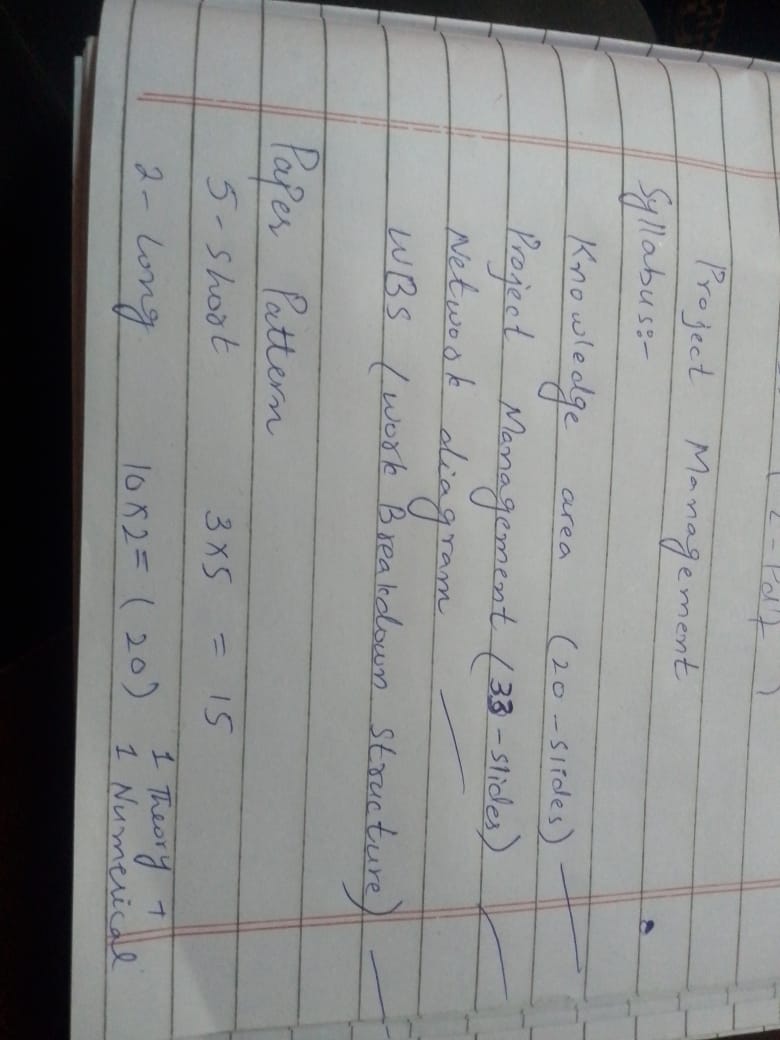 (2-Pdf)
Project Management
Syllabus:-
Knowledge area (20-slides)
Project Management (33-slides)
Network diagram
WBS (work Breakdown structure)
Paper Pattern
5-short 3x5 = 15
2-Long 10x2= (20) 1 Theory +
1 Numerical